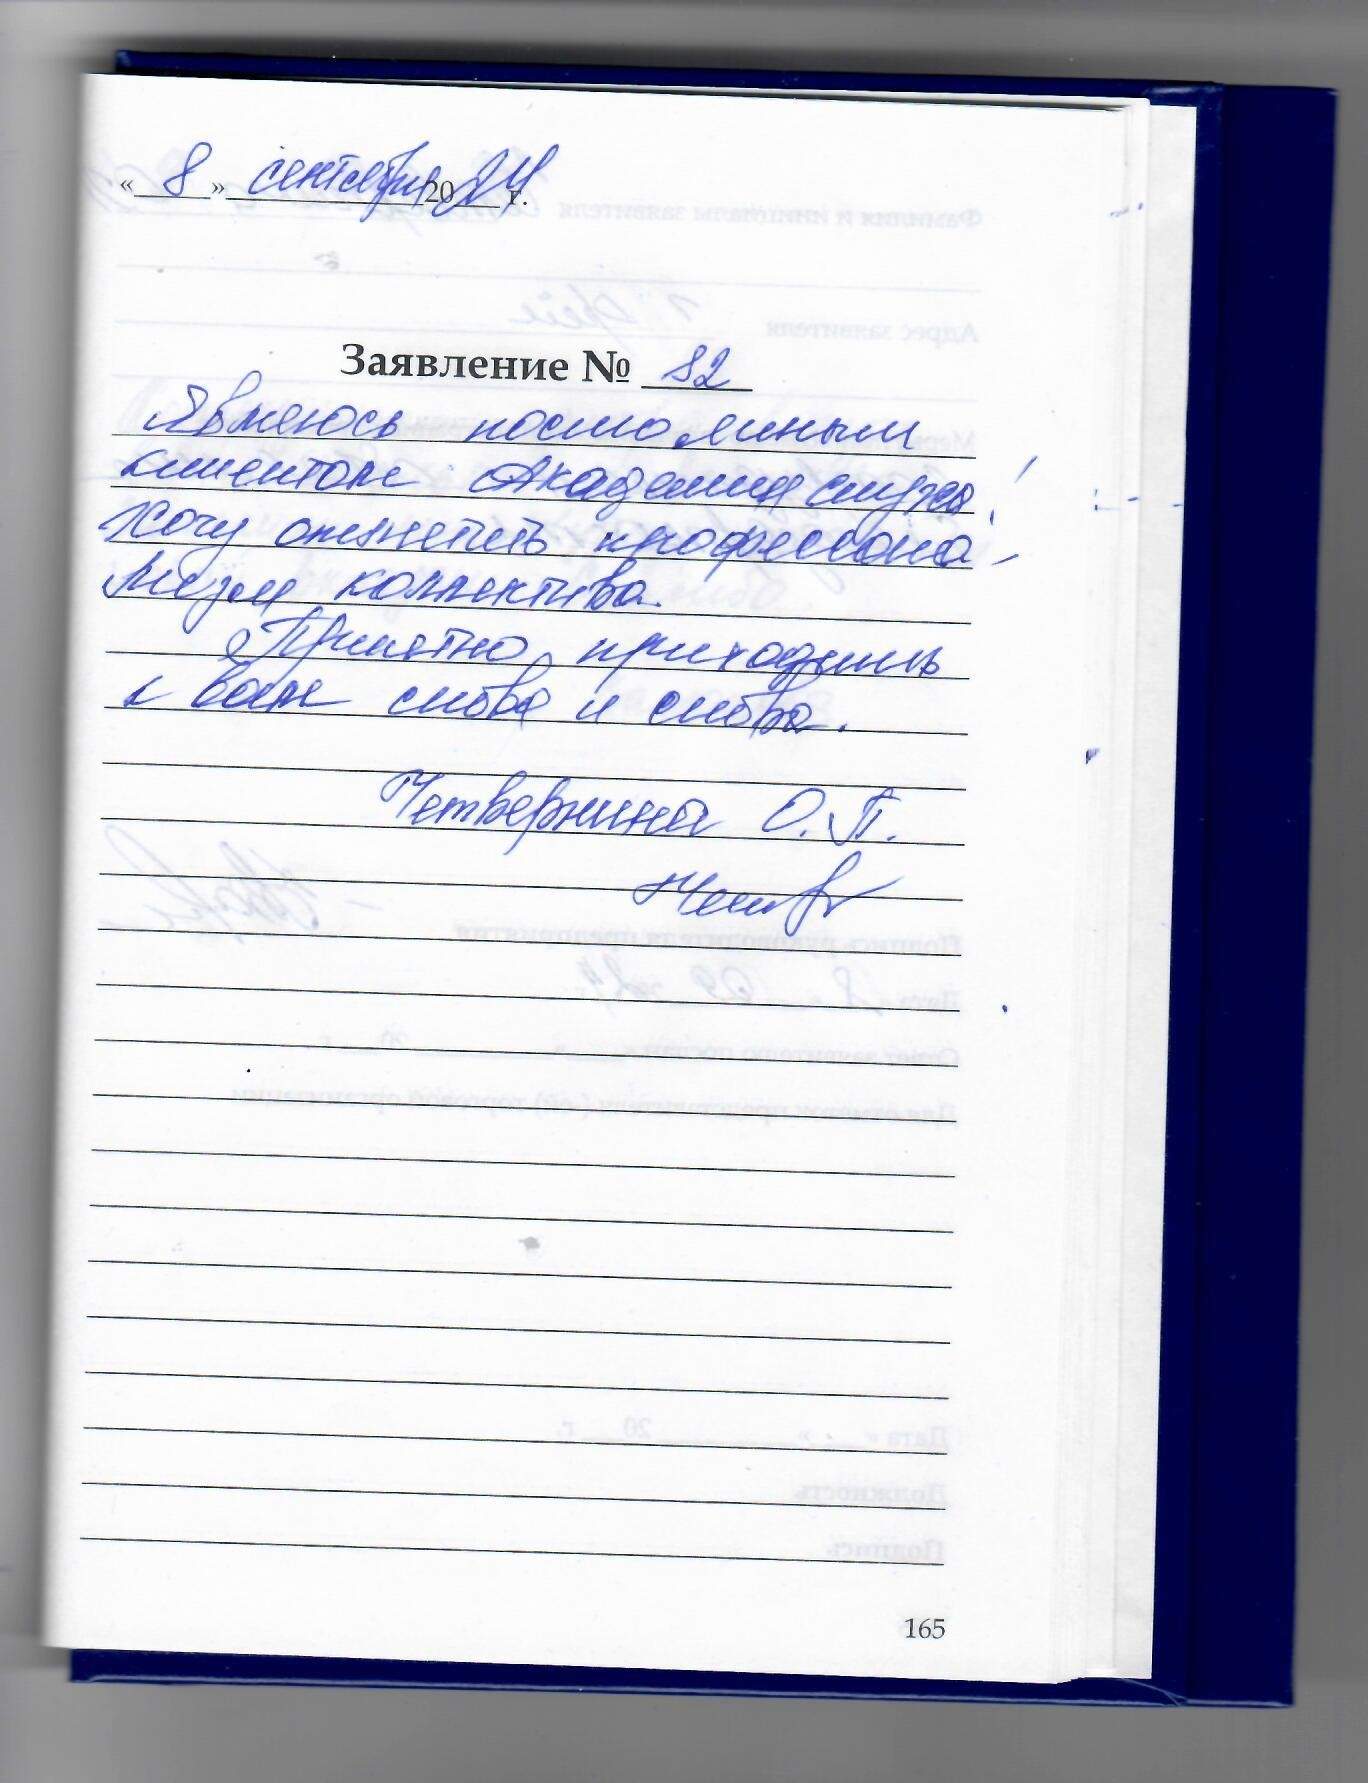 « 8 » сентября 2024 г.
Заявление № 82
Являюсь постоянным
клиентом Академия слуха!
Хочу отметить професcиона-
лизм коллектива.
Приятно приходить
к вам снова и снова.
Четвернина О.П.
165